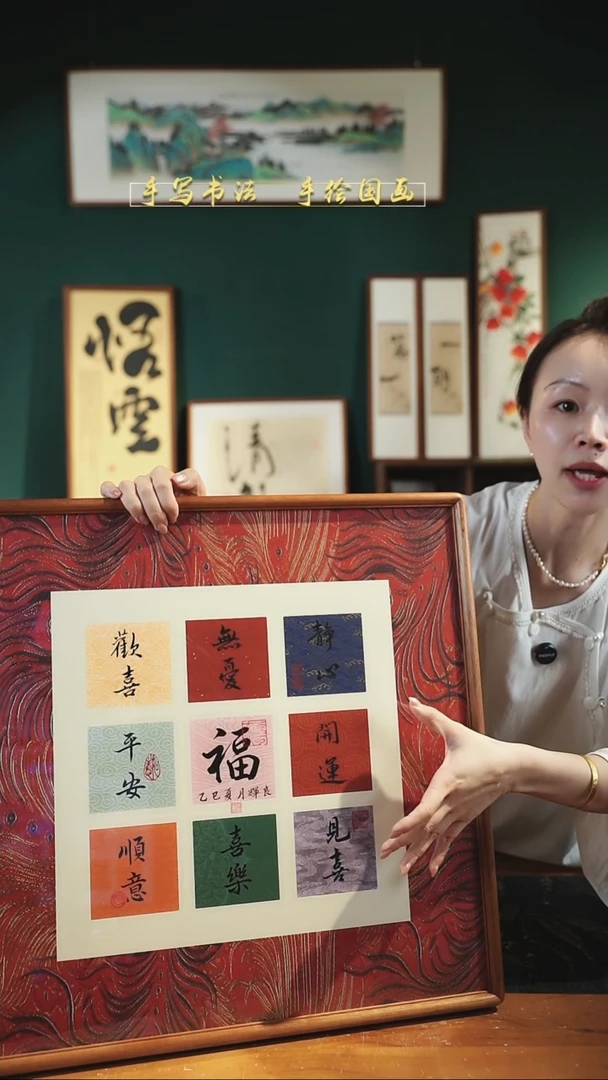 手写书法 手绘国画
悟
空
清
第
一
一
歡
喜
無
憂
静
心
平
安
福
乙巳夏月輝良
開
運
順
意
喜
樂
見
喜